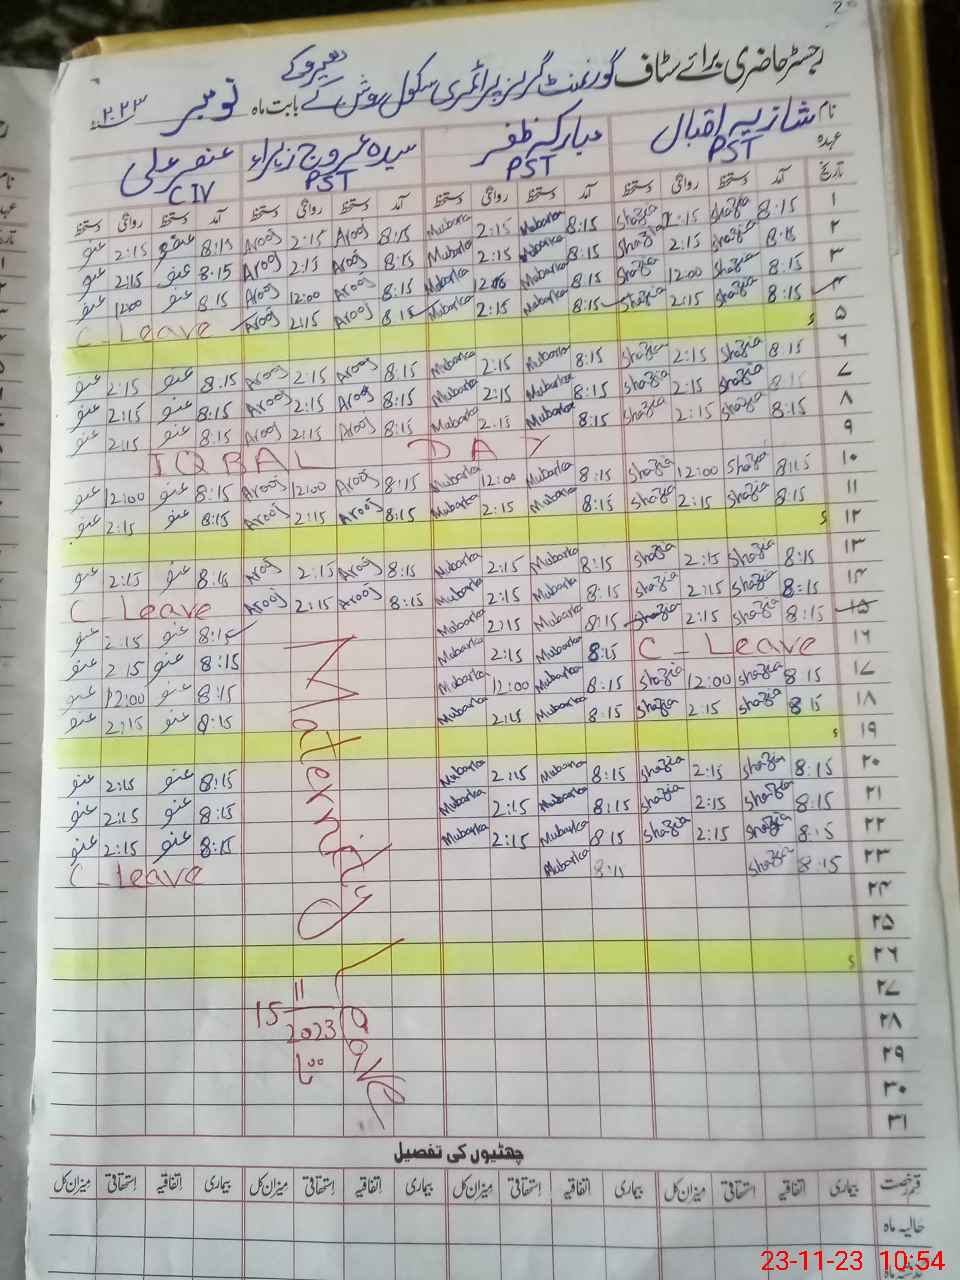 رجسٹر حاضری برائے سٹاف گورنمنٹ گرلز پرائمری سکول روشن کے بابت ماہ نومبر ۲۰۲۳
نام شازیہ اقبال مبارکہ ظفر سیدہ عروج زہراء عنصر علی
عہدہ PST PST PST CIV
تاریخ آمد دستخط روانگی دستخط آمد دستخط روانگی دستخط آمد دستخط روانگی دستخط آمد دستخط روانگی دستخط
۱ 8:15 Shazia 2:15 Shazia 8:15 Mubarka 2:15 Mubarka 8:15 Arooj 2:15 Arooj 8:15 عنصر 2:15 عنصر
۲ 8:15 Shazia 2:15 Shazia 8:15 Mubarka 2:15 Mubarka 8:15 Arooj 2:15 Arooj 8:15 عنصر 2:15 عنصر
۳ 8:15 Shazia 12:00 Shazia 8:15 Mubarka 12:00 Mubarka 8:15 Arooj 12:00 Arooj 8:15 عنصر 12:00 عنصر
۴ 8:15 Shazia 2:15 Shazia 8:15 Mubarka 2:15 Mubarka 8:15 Arooj 2:15 Arooj C-Leave
۵
۶ 8:15 Shazia 2:15 Shazia 8:15 Mubarka 2:15 Mubarka 8:15 Arooj 2:15 Arooj 8:15 عنصر 2:15 عنصر
۷ 8:15 Shazia 2:15 Shazia 8:15 Mubarka 2:15 Mubarka 8:15 Arooj 2:15 Arooj 8:15 عنصر 2:15 عنصر
۸ 8:15 Shazia 2:15 Shazia 8:15 Mubarka 2:15 Mubarka 8:15 Arooj 2:15 Arooj 8:15 عنصر 2:15 عنصر
۹ IQBAL DAY
۱۰ 8:15 Shazia 12:00 Shazia 8:15 Mubarka 12:00 Mubarka 8:15 Arooj 12:00 Arooj 8:15 عنصر 12:00 عنصر
۱۱ 8:15 Shazia 2:15 Shazia 8:15 Mubarka 2:15 Mubarka 8:15 Arooj 2:15 Arooj 8:15 عنصر 2:15 عنصر
۱۲
۱۳ 8:15 Shazia 2:15 Shazia 8:15 Mubarka 2:15 Mubarka 8:15 Arooj 2:15 Arooj 8:15 عنصر 2:15 عنصر
۱۴ 8:15 Shazia 2:15 Shazia 8:15 Mubarka 2:15 Mubarka 8:15 Arooj 2:15 Arooj C-Leave
۱۵ 8:15 Shazia 2:15 Shazia 8:15 Mubarka 2:15 Mubarka 8:15 عنصر 2:15 عنصر
۱۶ C-Leave 8:15 Mubarka 2:15 Mubarka 8:15 عنصر 2:15 عنصر
۱۷ 8:15 Shazia 12:00 Shazia 8:15 Mubarka 12:00 Mubarka 8:15 عنصر 12:00 عنصر
۱۸ 8:15 Shazia 2:15 Shazia 8:15 Mubarka 2:15 Mubarka 8:15 عنصر 2:15 عنصر
۱۹
۲۰ 8:15 Shazia 2:15 Shazia 8:15 Mubarka 2:15 Mubarka 8:15 عنصر 2:15 عنصر
۲۱ 8:15 Shazia 2:15 Shazia 8:15 Mubarka 2:15 Mubarka 8:15 عنصر 2:15 عنصر
۲۲ 8:15 Shazia 2:15 Shazia 8:15 Mubarka 2:15 Mubarka 8:15 عنصر 2:15 عنصر
۲۳ 8:15 Shazia 8:15 Mubarka C-Leave
۲۴
۲۵
۲۶
۲۷
۲۸
۲۹
۳۰
۳۱
Maternity Leave
15 11 2023
چھٹیوں کی تفصیل
قسم رخصت بیماری اتفاقیہ استحقاقی میزان کل بیماری اتفاقیہ استحقاقی میزان کل بیماری اتفاقیہ استحقاقی میزان کل بیماری اتفاقیہ استحقاقی میزان کل
حالیہ ماہ
23-11-23 10:54